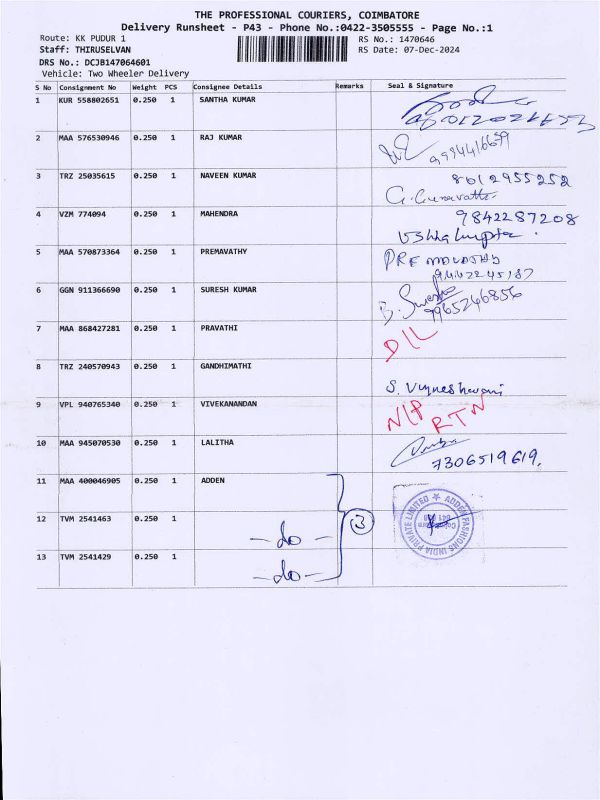 THE PROFESSIONAL COURIERS, COIMBATORE
Delivery Runsheet - P43 - Phone No.:0422-3505555 - Page No.:1
Route: KK PUDUR 1 RS No.: 1470646
Staff: THIRUSELVAN RS Date: 07-Dec-2024
DRS No.: DCJB147064601
Vehicle: Two Wheeler Delivery
S No Consignment No Weight PCS Consignee Details Remarks Seal & Signature
1 KUR 558802651 0.250 1 SANTHA KUMAR
2 MAA 576530946 0.250 1 RAJ KUMAR
3 TRZ 25035615 0.250 1 NAVEEN KUMAR 8012955252
4 VZM 774094 0.250 1 MAHENDRA 9842287208
5 MAA 570873364 0.250 1 PREMAVATHY
6 GGN 911366690 0.250 1 SURESH KUMAR B. Suresh
9965246856
7 MAA 868427281 0.250 1 PRAVATHI D/L
8 TRZ 240570943 0.250 1 GANDHIMATHI
S. Vigneshwari
9 VPL 940765340 0.250 1 VIVEKANANDAN N/P RTN
10 MAA 945070530 0.250 1 LALITHA
7306519619.
11 MAA 400046905 0.250 1 ADDEN
ADDEN FASHIONS INDIA PRIVATE LIMITED
12 TVM 2541463 0.250 1 - do - 3
13 TVM 2541429 0.250 1 - do -